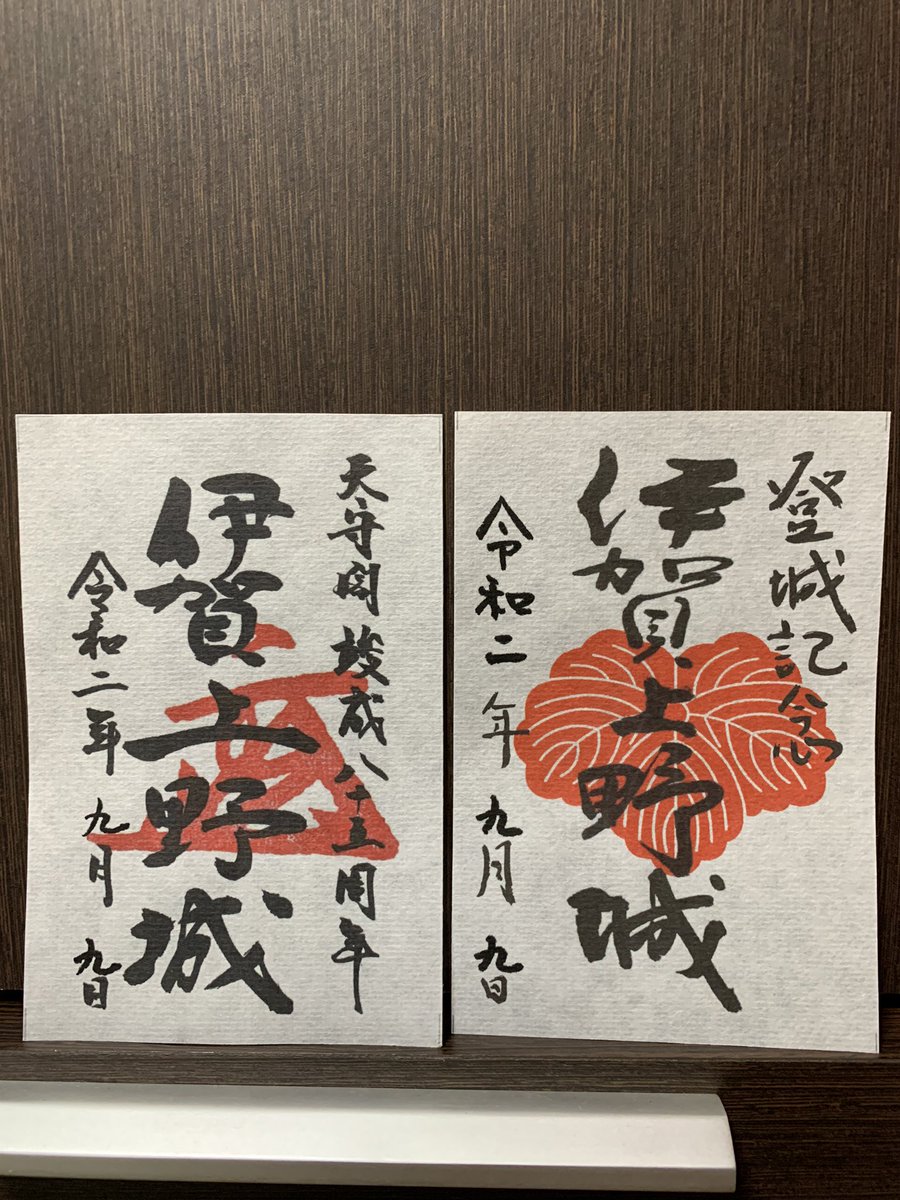 天守閣竣成八十五周年
伊賀上野城
令和二年 九月 九日
登城記念
伊賀上野城
令和二年 九月 九日